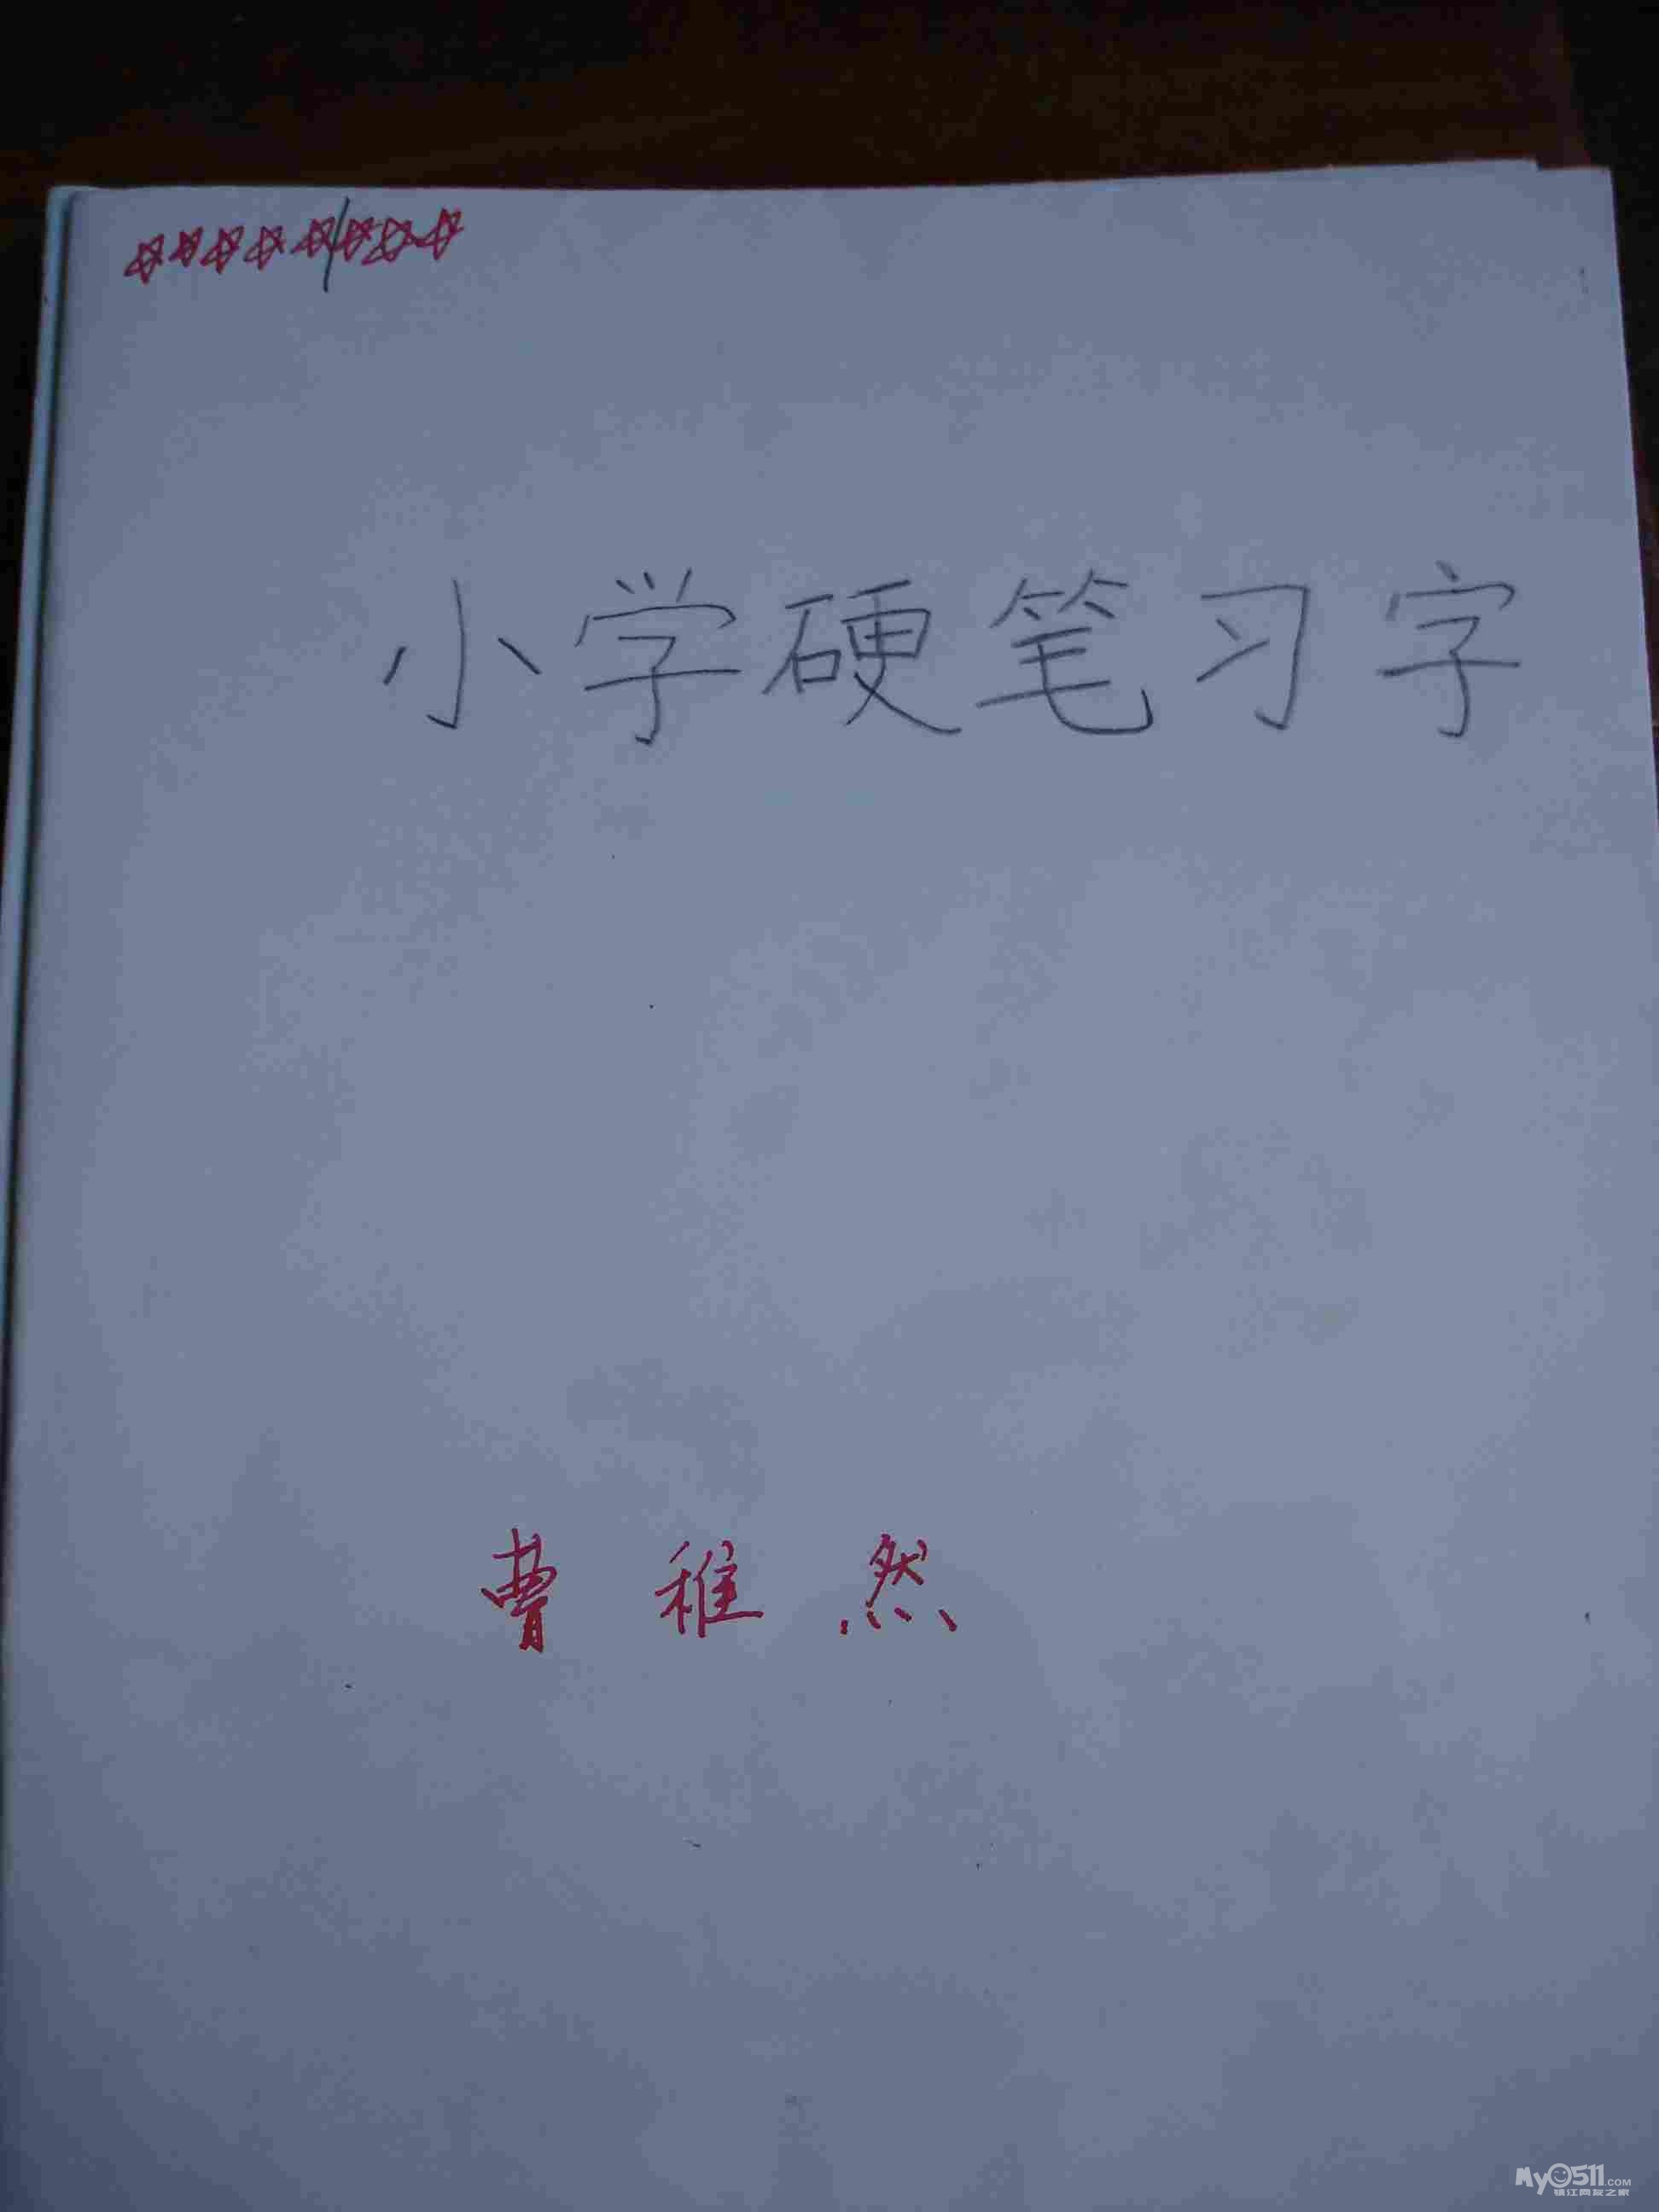 小学硬笔习字
曹稚然
My0511.com
镇江网友之家